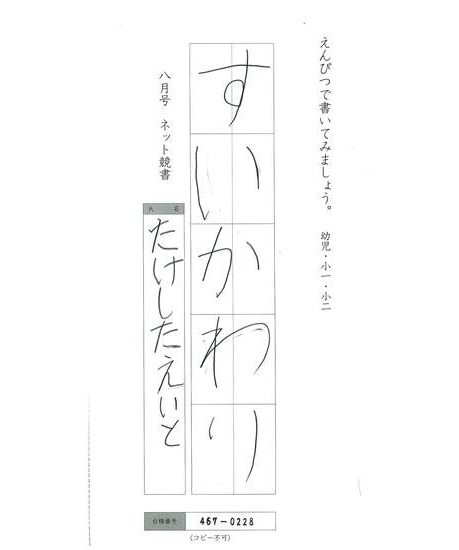 えんぴつで書いてみましょう。　幼児・小一・小二
すいかわり
八月号　ネット競書
氏　名
たけしたえいと
合格番号　467-0228
(コピー不可)